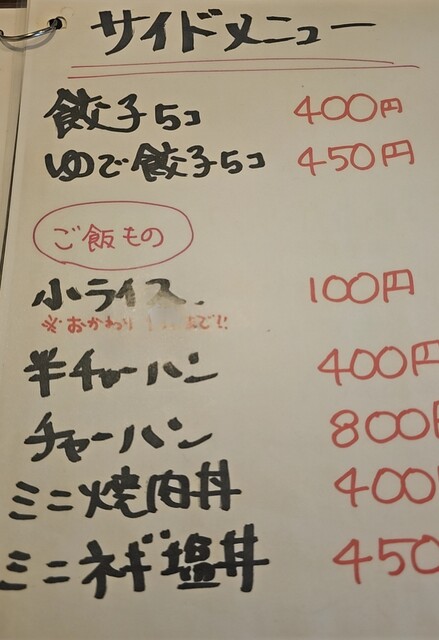 サイドメニュー
餃子5コ 400円
ゆで餃子5コ 450円
ご飯もの
小ライス 100円
※おかわり まで!!
半チャーハン 400円
チャーハン 800円
ミニ焼肉丼 400
ミニネギ塩丼 450